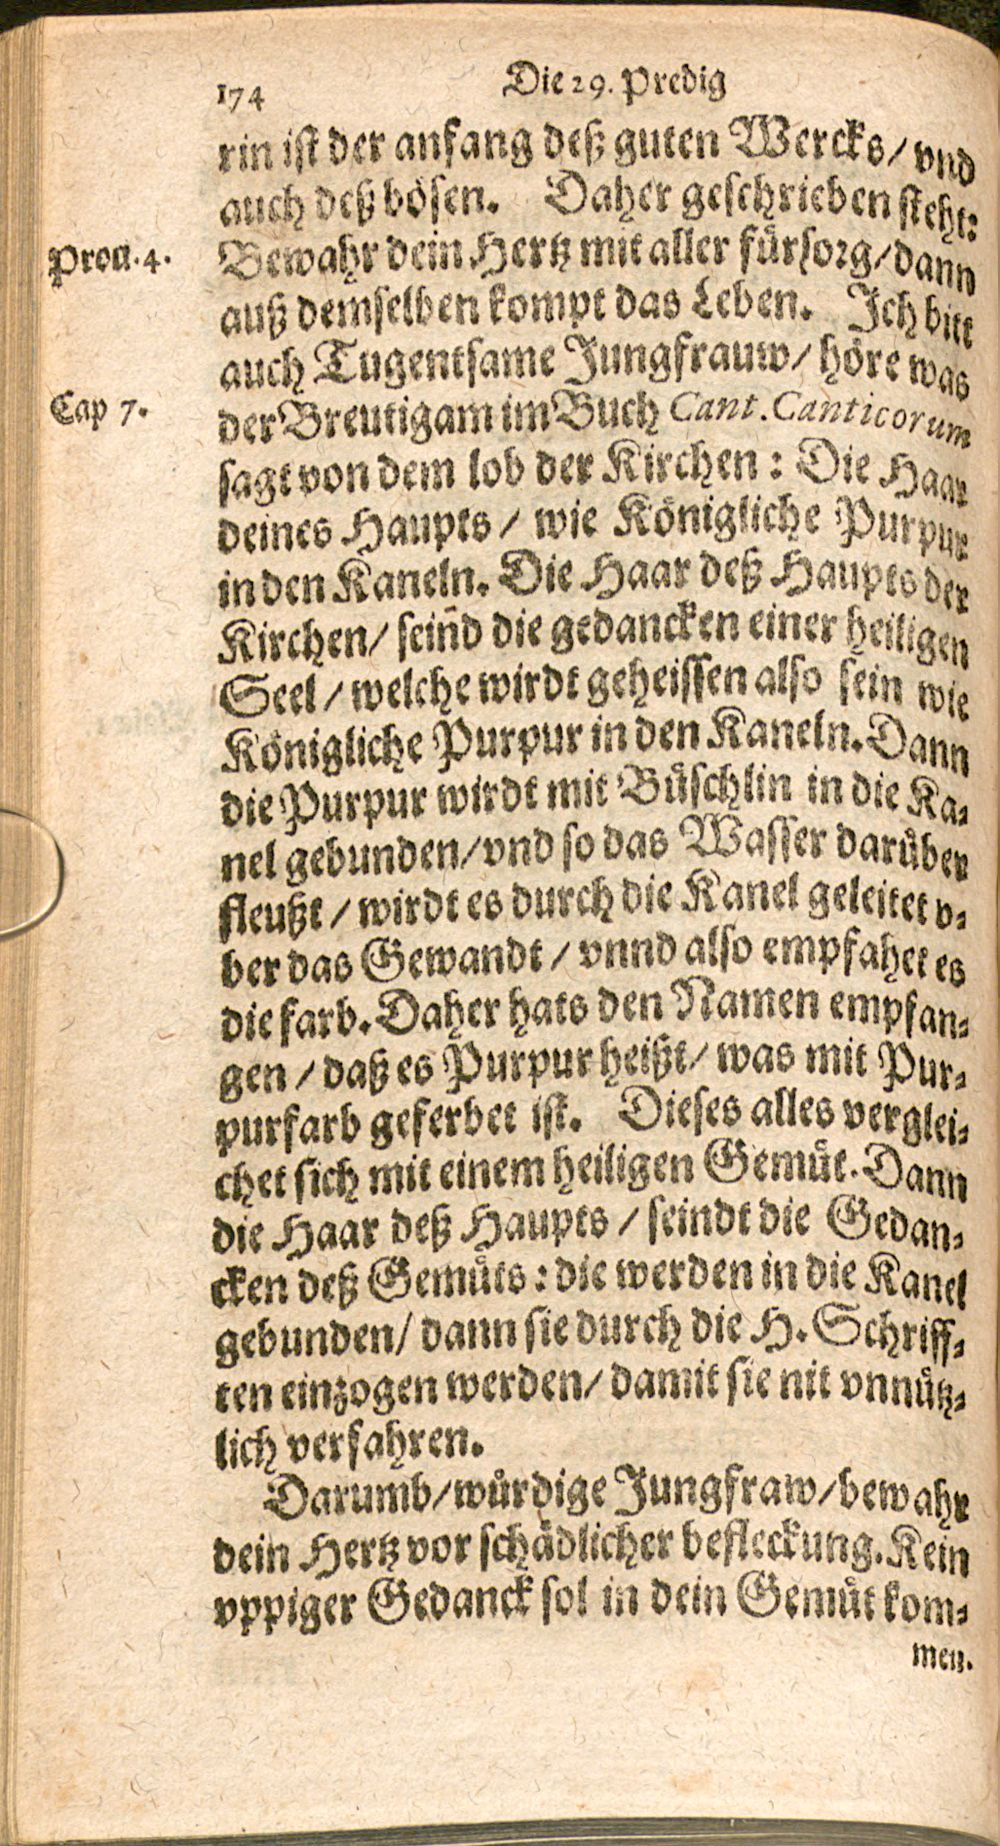 174 Die 29. Predig
rin ist der anfang deß guten Wercks / vnd
auch deß bösen. Daher geschrieben steht:
Prou. 4.
Bewahr dein Hertz mit aller fürsorg / dann
auß demselben kompt das Leben. Ich bitt
auch Tugentsame Jungfrauw / höre was
Cap 7.
der Breutigam im Buch Cant. Canticorum
sagt von dem lob der Kirchen: Die Haar
deines Haupts / wie Königliche Purpur
in den Kaneln. Die Haar deß Haupts der
Kirchen / seiñd die gedancken einer heiligen
Seel / welche wirdt geheissen also sein wie
Königliche Purpur in den Kaneln. Dann
die Purpur wirdt mit Büschlin in die Ka-
nel gebunden / vnd so das Wasser darüber
fleußt / wirdt es durch die Kanel geleitet v-
ber das Gewandt / vnnd also empfahet es
die farb. Daher hats den Namen empfan-
gen / daß es Purpur heißt / was mit Pur-
purfarb geferbet ist. Dieses alles verglei-
chet sich mit einem heiligen Gemüt. Dann
die Haar deß Haupts / seindt die Gedan-
cken deß Gemüts: die werden in die Kanel
gebunden / dann sie durch die H. Schriff-
ten einzogen werden / damit sie nit vnnütz-
lich verfahren.
Darumb / würdige Jungfraw / bewahr
dein Hertz vor schädlicher befleckung. Kein
vppiger Gedanck sol in dein Gemüt kom-
men.